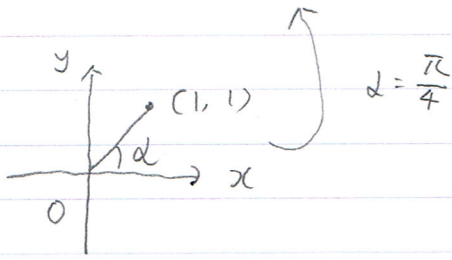 y
(1, 1)
α = π/4
α
x
O